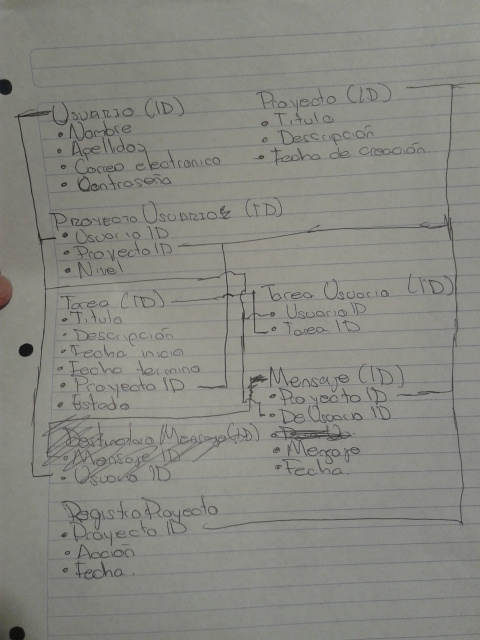 Usuario (ID)
• Nombre
• Apellidos
• Correo electronico
• Contraseña
Proyecto (ID)
• Titulo
• Descripción
• Fecha de creación
Proyecto Usuario (ID)
• Usuario ID
• Proyecto ID
• Nivel
Tarea (ID)
• Titulo
• Descripción
• Fecha inicio
• Fecha termino
• Proyecto ID
• Estado
Tarea Usuario (ID)
• Usuario ID
• Tarea ID
Mensaje (ID)
• Proyecto ID
• De Usuario ID
• Mensaje
• Fecha
Destinatario Mensaje (ID)
• Mensaje ID
• Usuario ID
Registro Proyecto
• Proyecto ID
• Acción
• Fecha